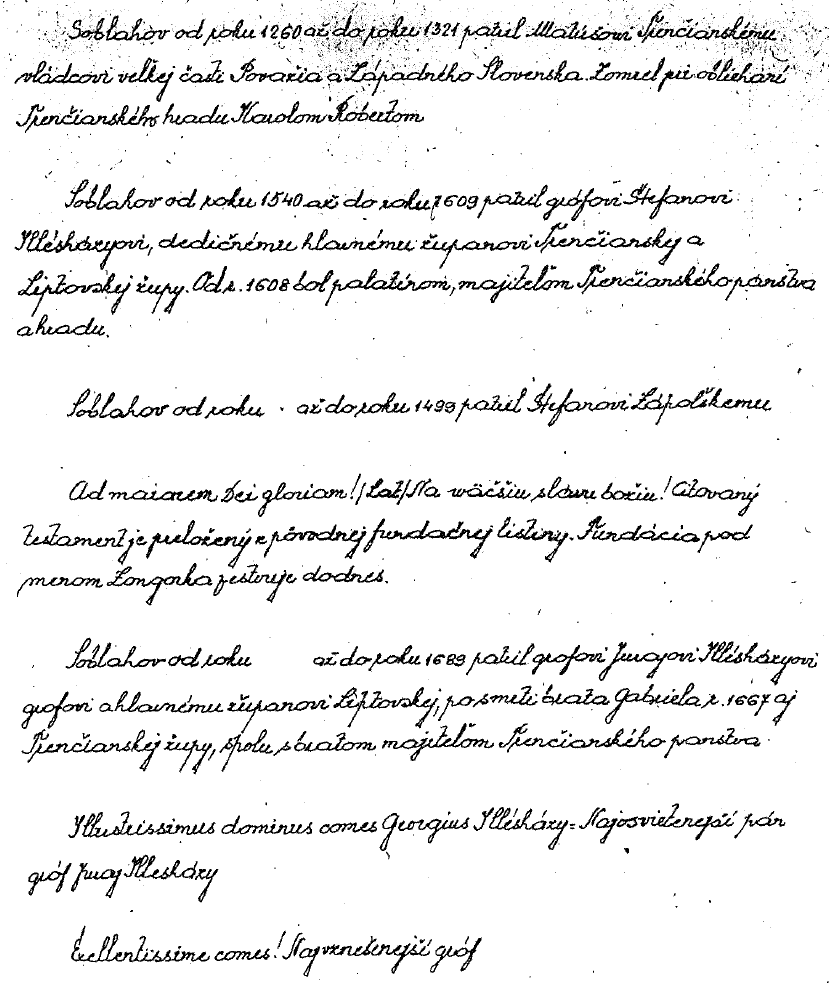 Soblahov od roku 1260 až do roku 1321 patril Matúšovi Trenčianskému
vládcovi veľkej časti Považia a Západného Slovenska. Zomrel pri obliehaní
Trenčianského hradu Karolom Robertom
Soblahov od roku 1540 až do roku 1609 patril grófovi Štefanovi
Illésházyovi, dedičnému hlavnému županovi Trenčianskej a
Liptovskej župy. Od r. 1608 bol palatínom, majiteľom Trenčianského panstva
a hradu.
Soblahov od roku . až do roku 1499 patril Štefanovi Zápoľskému
Ad maiorem Dei gloriam! /Lat/ Na väčšiu slávu božiu! Citovaný
testament je preložený z pôvodnej fundačnej listiny. Fundácia pod
menom Longorka existuje dodnes.
Soblahov od roku až do roku 1689 patril grofovi Jurajovi Illésházyovi
grofovi a hlavnému županovi Liptovskej, po smrti brata Gabriela r. 1667 aj
Trenčianskej župy, spolu s bratom majiteľom Trenčianského panstva
Illustrissimus dominus comes Georgius Illésházy = Najosvietenejší pán
gróf Juraj Illesházy
Excellentissime comes! Najvznešenejší gróf